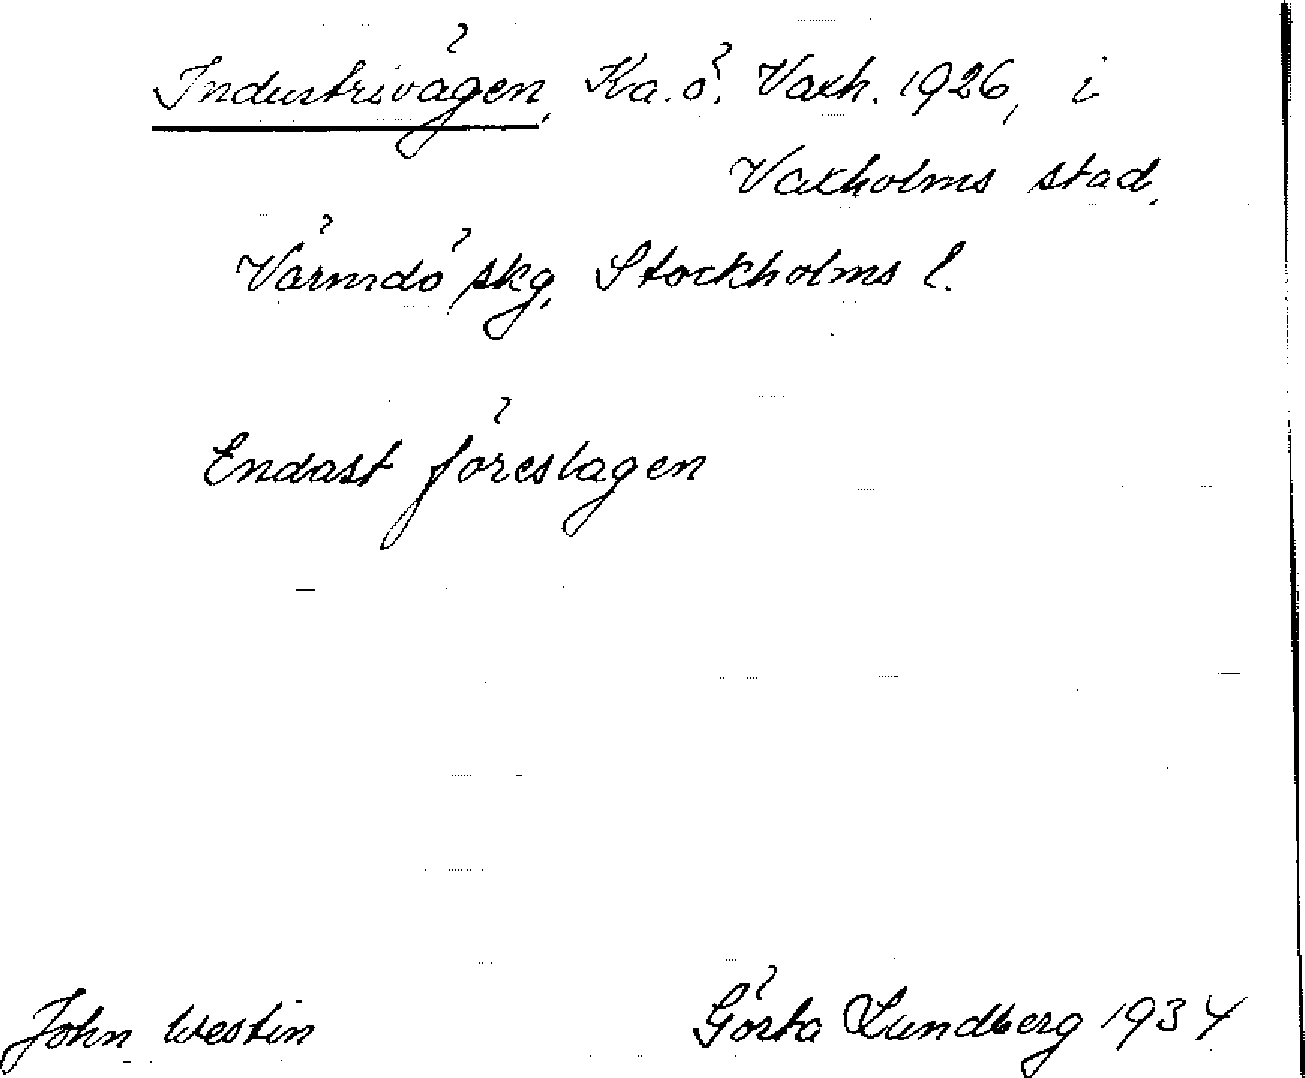 Industrivägen, Ka. ö. Vaxh. 1926, i
Vaxholms stad,
Värmdö skg, Stockholms l.
Endast föreslagen
John Westin
Görta Lundberg 1934